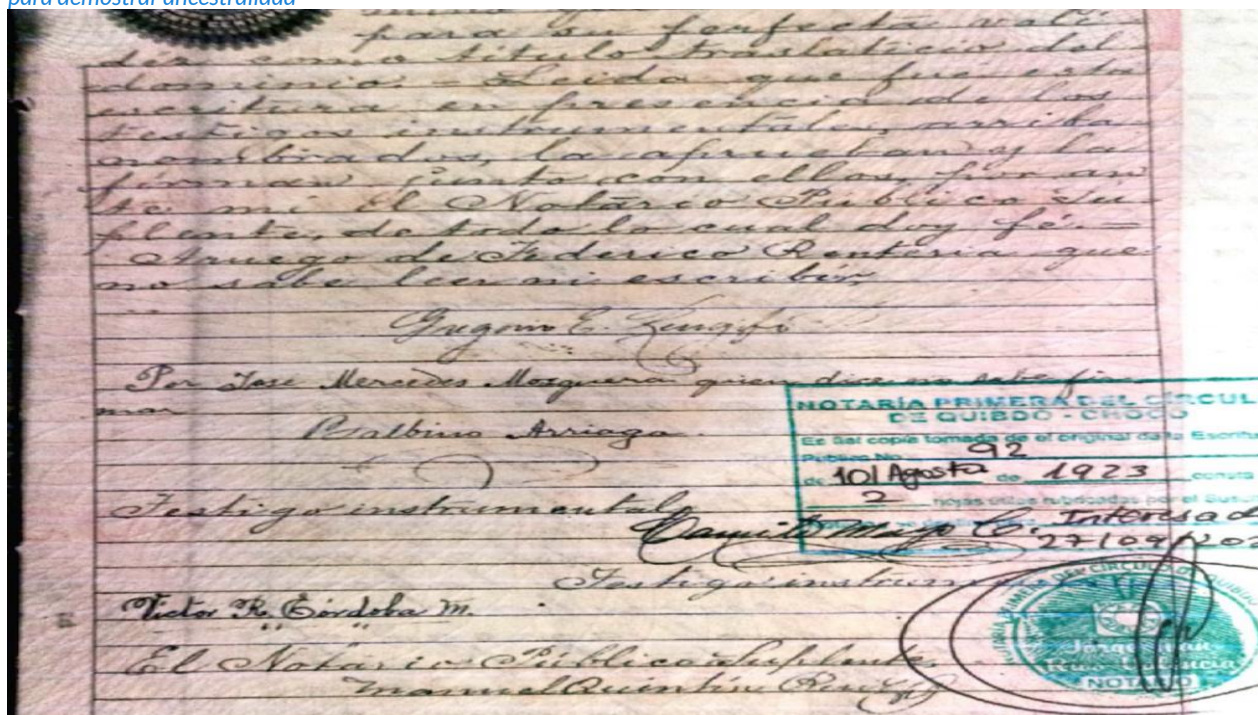 para demostrar ancestralidad
para su perfecta vali
dez como título translaticio del
dominio. - Leida que fué esta
escritura en presencia de los
testigos instrumentales, arriba
nombrados, la aprueban y la
firman junto con ellos, por an
te mí el Notario Público Su
plente, de todo lo cual doy fé. =
A ruego de Federico Renteria que
no sabe leer ni escribir,
Gregorio E. Rengifo
Por José Mercedes Mosquera quien dice no sabe fir
mar
Balbino Arriaga.
Testigo instrumental,
Camilo Mayo C.
Testigo instrum
Victor R. Córdoba M.
El Notario Público Suplente,
Manuel Quintín Rengifo
NOTARÍA PRIMERA DEL CIRCUL
DE QUIBDO - CHOCO
Es fiel copia tomada de el original de la Escritu
Publica No. 92
de 10/Agosto de 1923 consta
2 hojas utiles rubricadas por el Sus
Interesad
27/09/202
NOTARÍA PRIMERA DEL CIRCULO DE QUIBDO
NOTARIO